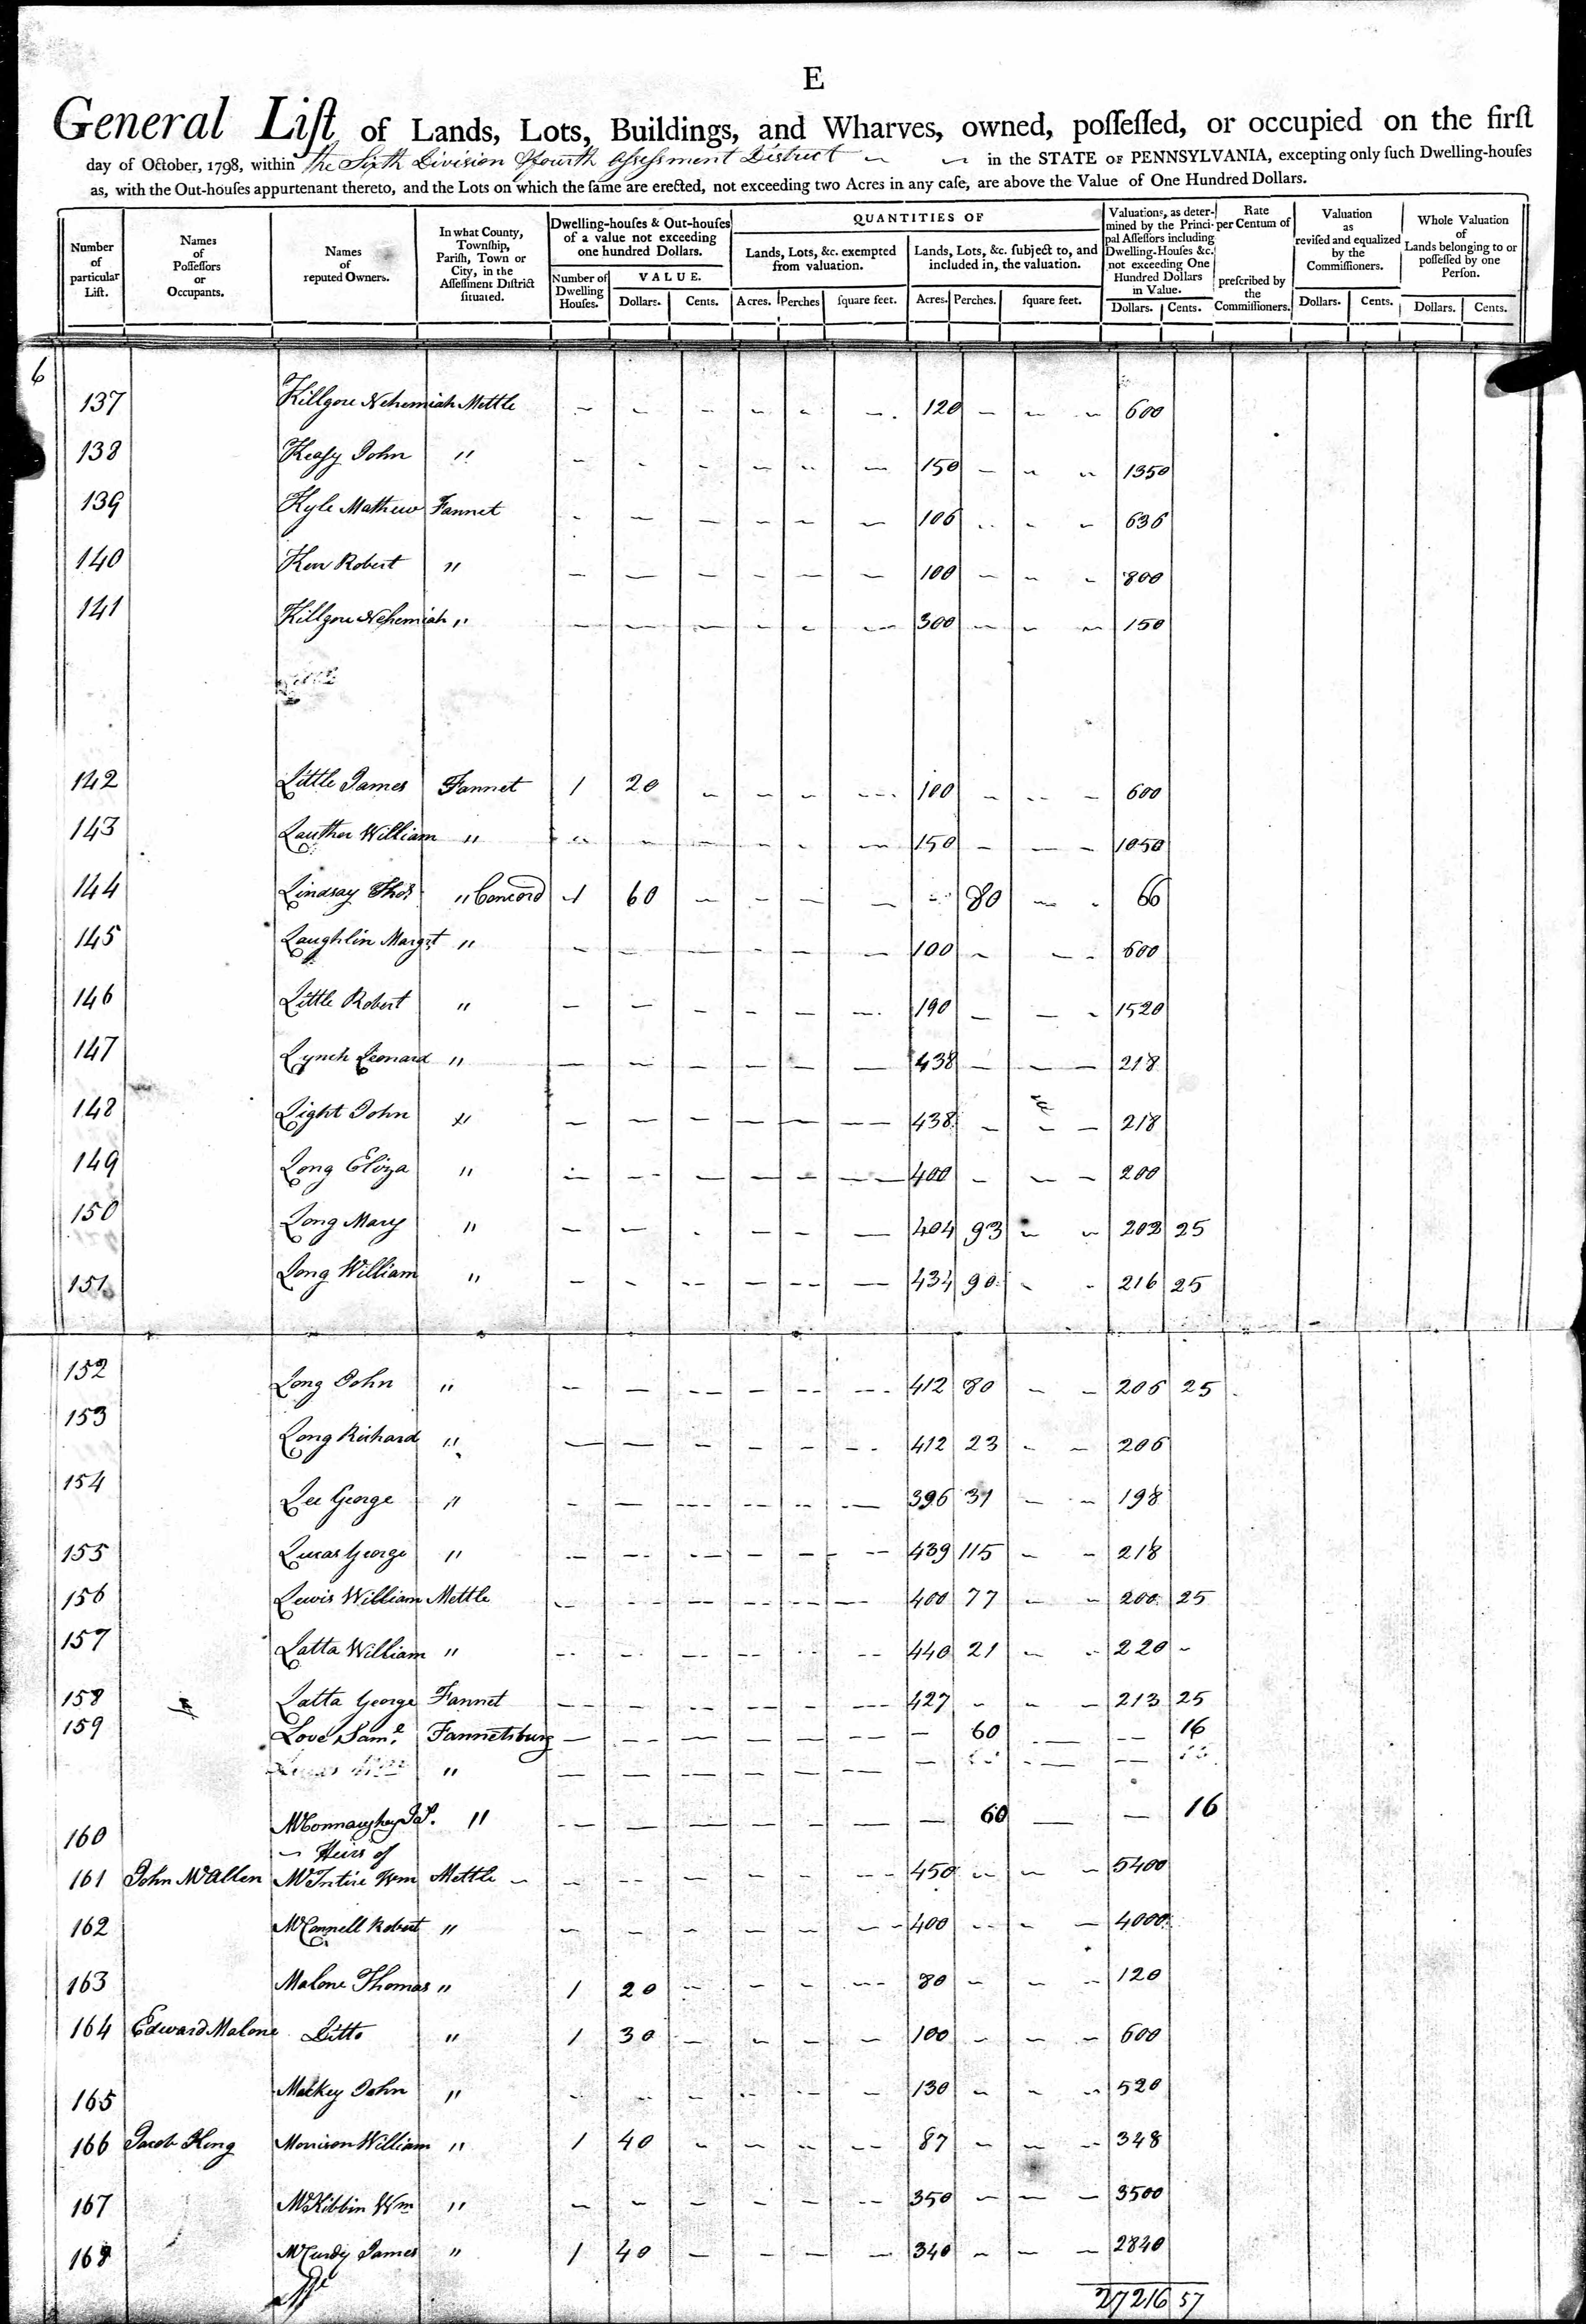 E
General Liſt of Lands, Lots, Buildings, and Wharves, owned, poſſeſſed, or occupied on the firſt
day of October, 1798, within the Sixth Division of fourth Assessment District in the STATE OF PENNSYLVANIA, excepting only ſuch Dwelling-houſes
as, with the Out-houſes appurtenant thereto, and the Lots on which the ſame are erected, not exceeding two Acres in any caſe, are above the Value of One Hundred Dollars.
Number of particular Liſt.
Names of Poſſeſſors or Occupants.
Names of reputed Owners.
In what County, Townſhip, Pariſh, Town or City, in the Aſſeſſment Diſtrict ſituated.
Dwelling-houſes & Out-houſes of a value not exceeding one hundred Dollars.
Number of Dwelling Houſes.
VALUE.
Dollars. Cents.
QUANTITIES OF
Lands, Lots, &c. exempted from valuation.
Acres. Perches ſquare feet.
Lands, Lots, &c. ſubject to, and included in, the valuation.
Acres. Perches. ſquare feet.
Valuations, as determined by the Principal Aſſeſſors including Dwelling-Houſes &c. not exceeding One Hundred Dollars in Value.
Dollars. Cents.
Rate per Centum of preſcribed by the Commiſſioners.
Valuation as reviſed and equalized by the Commiſſioners.
Dollars. Cents.
Whole Valuation of Lands belonging to or poſſeſſed by one Perſon.
Dollars. Cents.
6
137 Killgore Nehemiah Mettle 120 600
138 Keasy John " 150 1350
139 Kyle Mathew Fannet 106 636
140 Kerr Robert " 100 800
141 Killgore Nehemiah " 300 150
142 Little James Fannet 1 20 100 600
143 Lauther William " 150 1050
144 Lindsay Thos " Concord 1 60 80 66
145 Laughlin Margt " 100 600
146 Little Robert " 190 1520
147 Lynch Leonard " 438 218
148 Light John " 438 218
149 Long Eliza " 400 200
150 Long Mary " 404 93 202 25
151 Long William " 434 90 216 25
152 Long John " 412 80 206 25
153 Long Richard " 412 23 206
154 Lee George " 396 31 198
155 Lucas George " 439 115 218
156 Lewis William Mettle 400 77 200 25
157 Latta William " 440 21 220
158 Latta George Fannet 427 213 25
159 Love Saml Fannetsburg 60 16
"
160 McConnaughey " 60 16
Heirs of
161 John McAllen McIntire Wm Mettle 450 5400
162 McConnell Robert " 400 4000
163 Malone Thomas " 1 20 80 120
164 Edward Malone Ditto " 1 30 100 600
165 Mackey John " 130 520
166 Jacob King Morrison William " 1 40 87 348
167 McKibbin Wm " 350 3500
168 McCurdy James " 1 40 340 2840
27216 57